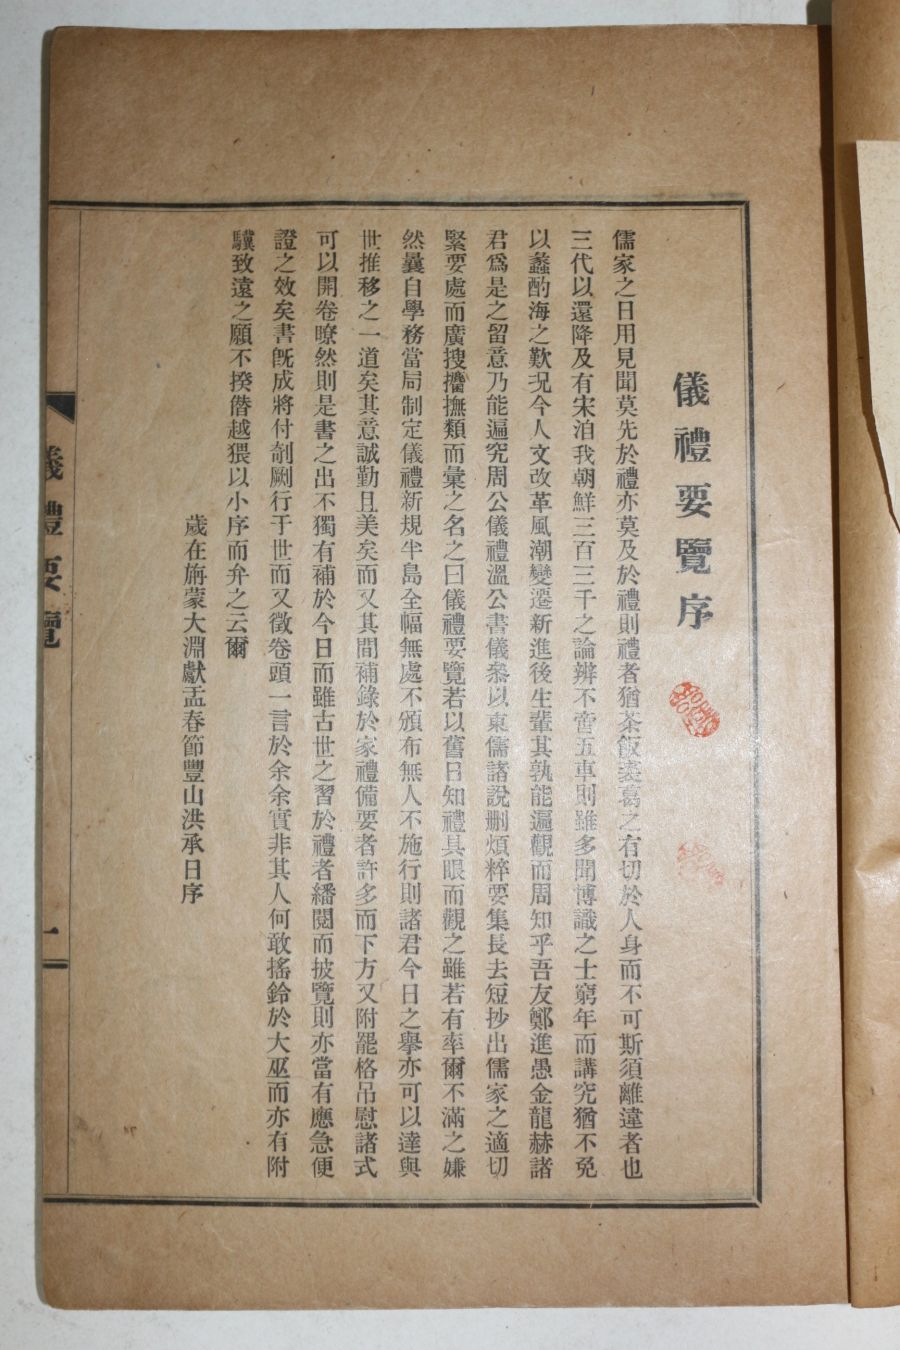 儀禮要覽序
儒家之日用見聞莫先於禮亦莫及於禮則禮者猶茶飯裘葛之有切於人身而不可斯須離違者也
三代以還降及有宋洎我朝鮮三百三千之論辨不啻五車則雖多聞博識之士窮年而講究猶不免
以蠡酌海之歎况今人文改革風潮變遷新進後生輩其孰能遍觀而周知乎吾友鄭進愚金龍赫諸
君爲是之留意乃能遍究周公儀禮溫公書儀叅以東儒諸說删煩粹要集長去短抄出儒家之適切
緊要處而廣搜攟撫類而彙之名之曰儀禮要覽若以舊日知禮具眼而觀之雖若有率爾不滿之嫌
然曩自學務當局制定儀禮新規半島全幅無處不頒布無人不施行則諸君今日之擧亦可以達與
世推移之一道矣其意誠勤且美矣而又其間補錄於家禮備要者許多而下方又附罷格吊慰諸式
可以開卷暸然則是書之出不獨有補於今日而雖古世之習於禮者繙閱而披覽則亦當有應急便
證之效矣書旣成將付剞劂行于世而又徵卷頭一言於余余實非其人何敢搖鈴於大巫而亦有附
驥致遠之願不揆僭越猥以小序而弁之云爾
歲在旃蒙大淵獻孟春節豐山洪承日序
儀禮要覽
一